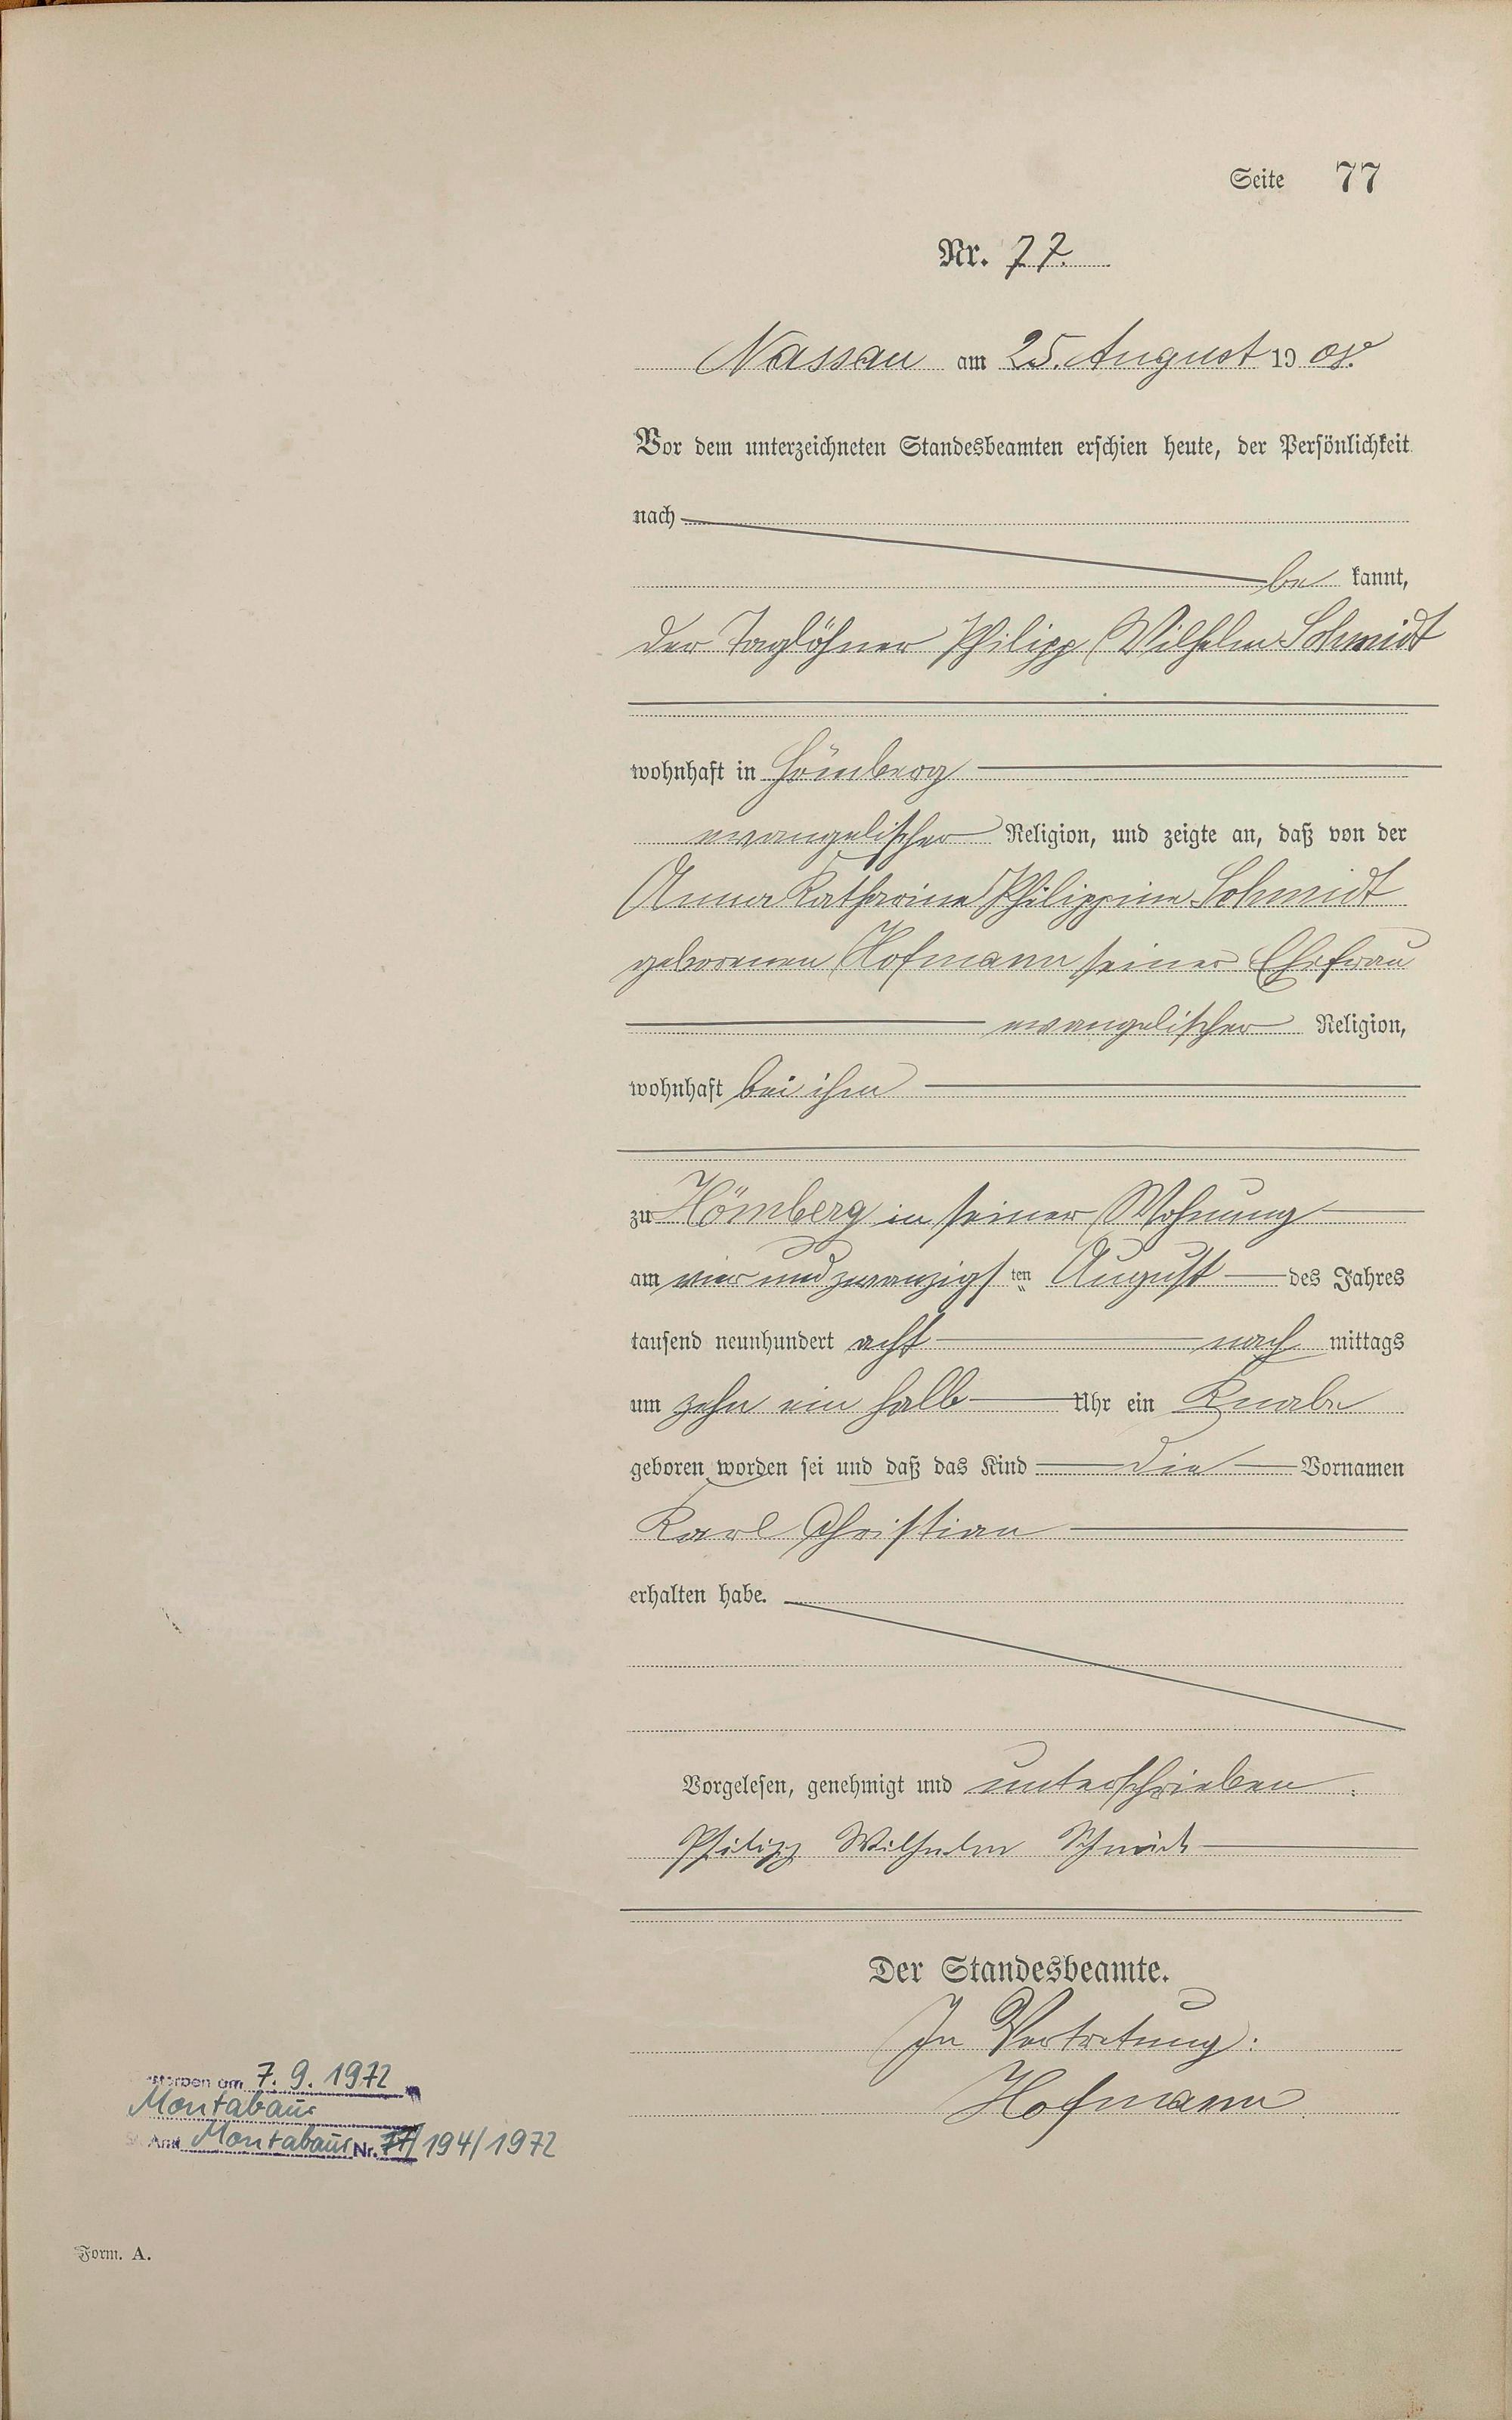 Seite 77
Nr. 77.
Nassau am 25. August 1908.
Vor dem unterzeichneten Standesbeamten erschien heute, der Persönlichkeit
nach
be kannt,
der Taglöhner Philipp Wilhelm Schmidt
wohnhaft in Hömberg
evangelischer Religion, und zeigte an, daß von der
Anna Katharine Philippine Schmidt
geborenen Hofmann seiner Ehefrau
evangelischer Religion,
wohnhaft bei ihm
zu Hömberg in seiner Wohnung
am vier und zwanzigsten August des Jahres
tausend neunhundert acht nach mittags
um zehn ein halb Uhr ein Knabe
geboren worden sei und daß das Kind die Vornamen
Karl Christian
erhalten habe.
Vorgelesen, genehmigt und unterschrieben.
Philipp Wilhelm Schmidt
Der Standesbeamte.
In Vertretung:
Hofmann
storben am 7. 9. 1972
Montabaur
St.Amt Montabaur Nr. 77/194/1972
Form. A.